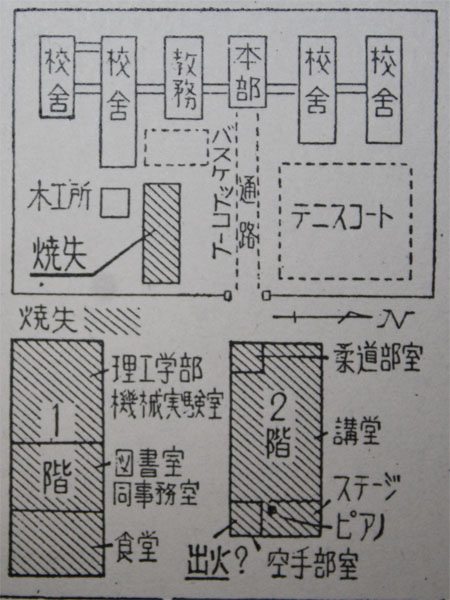 校舎
校舎
教務
本部
校舎
校舎
バスケットコート
通路
テニスコート
木工所
焼失
焼失
N
1階
理工学部
機械実験室
図書室
同事務室
食堂
2階
柔道部室
講堂
ステージ
ピアノ
出火?
空手部室